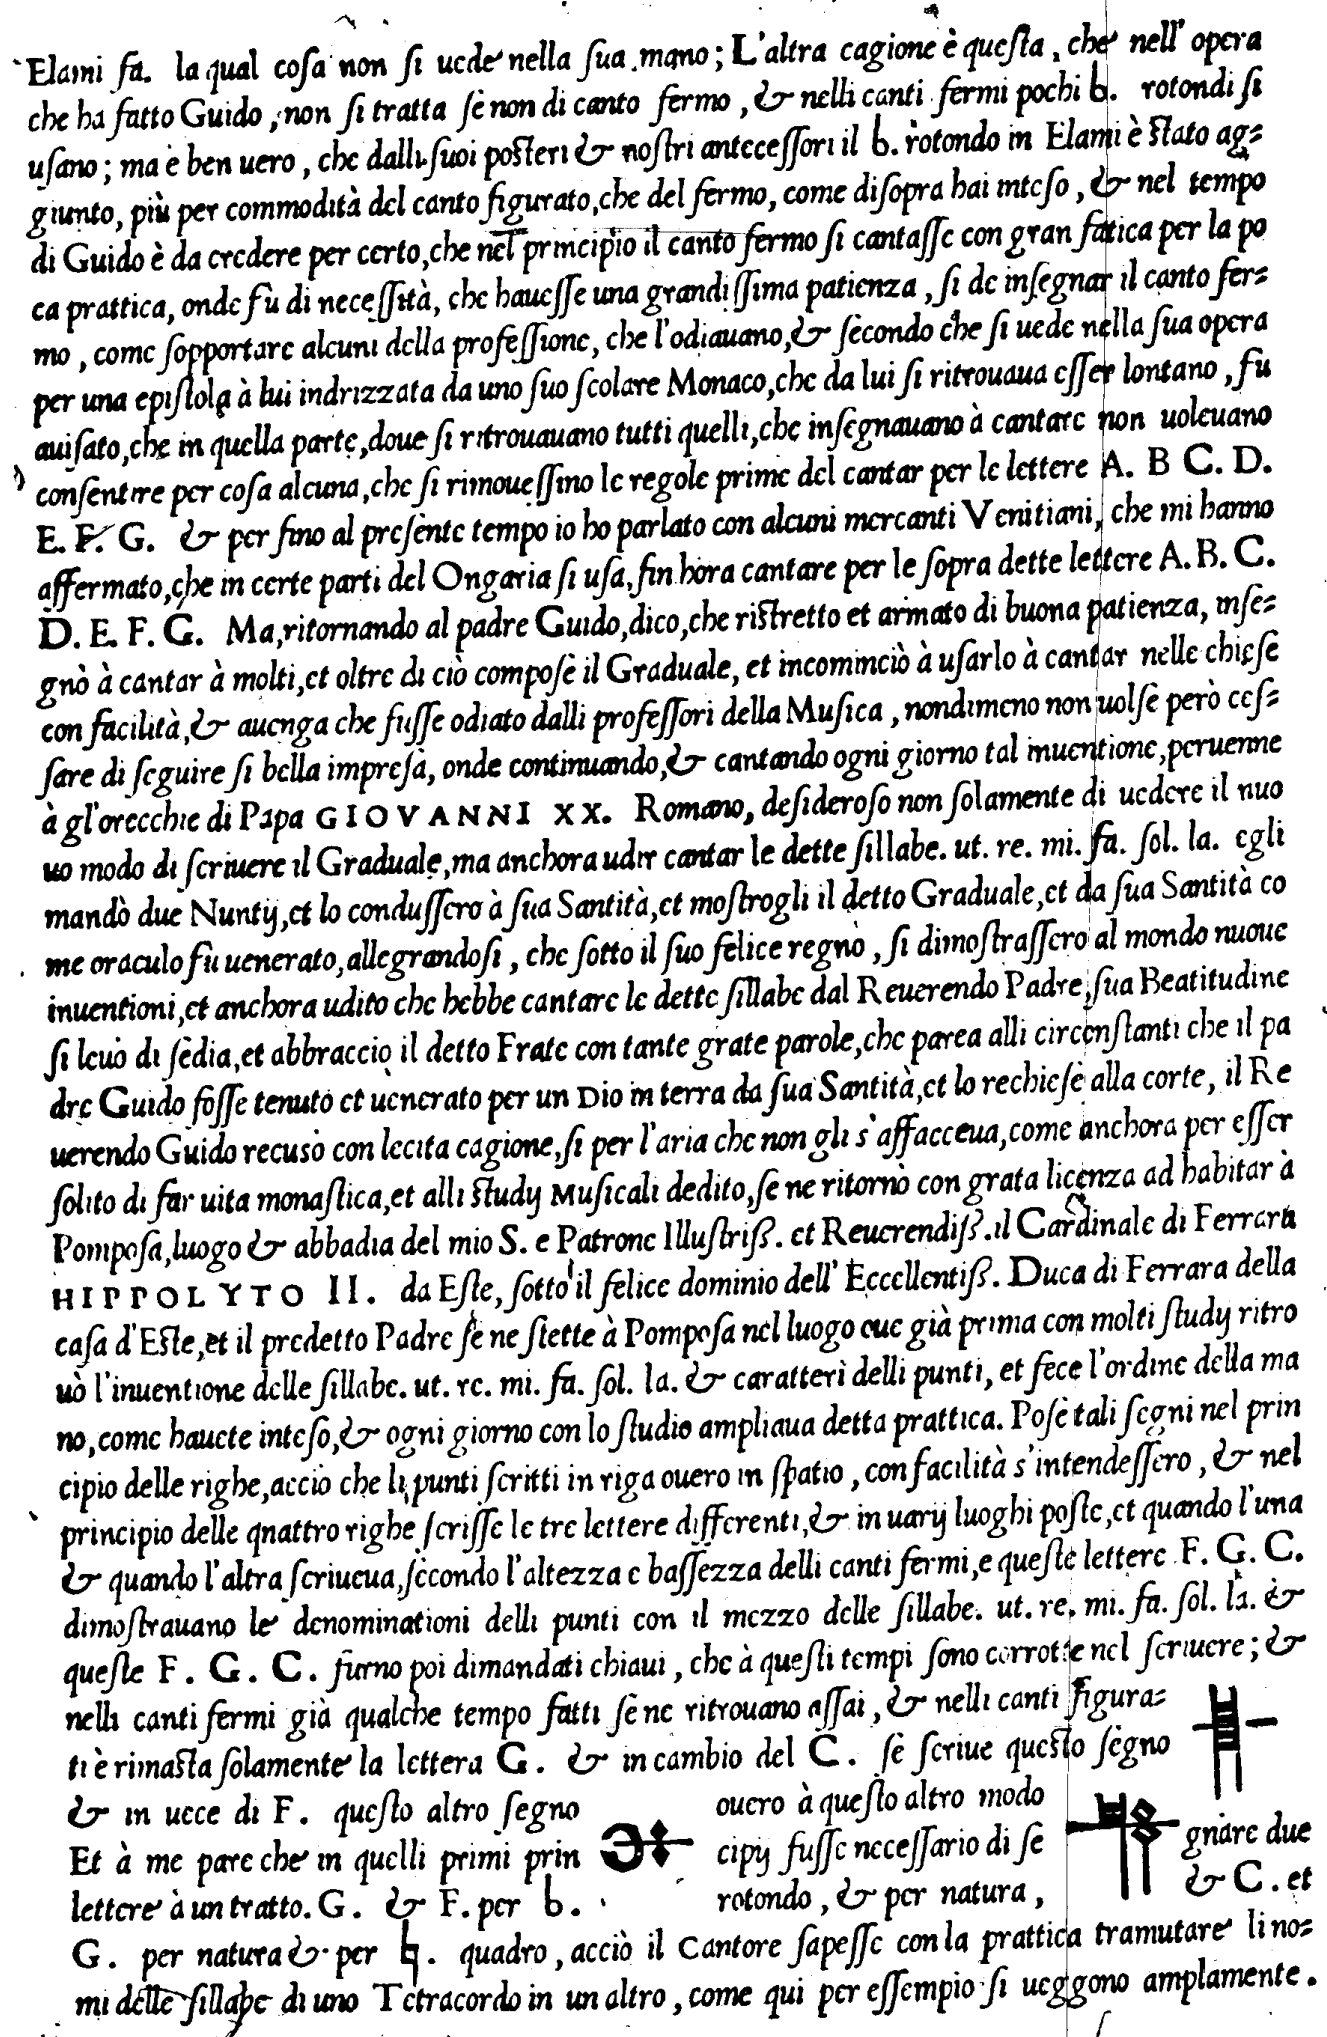 Elami fa. la qual cosa non si uede nella sua mano; L'altra cagione è questa, che nell' opera
che ha fatto Guido, non si tratta se non di canto fermo, & nelli canti fermi pochi b. rotondi si
usano; ma è ben uero, che dalli suoi posteri & nostri antecessori il b. rotondo in Elami è stato ag-
giunto, più per commodità del canto figurato, che del fermo, come disopra hai inteso, & nel tempo
di Guido è da credere per certo, che nel principio il canto fermo si cantasse con gran fatica per la po
ca prattica, onde fù di necessità, che hauesse una grandissima patienza, si de insegnar il canto fer-
mo, come sopportare alcuni della professione, che l'odiauano, & secondo che si uede nella sua opera
per una epistola à lui indrizzata da uno suo scolare Monaco, che da lui si ritrouaua esser lontano, fu
auisato, che in quella parte, doue si ritrouauano tutti quelli, che insegnauano à cantare non uoleuano
consentire per cosa alcuna, che si rimouessino le regole prime del cantar per le lettere A. B C. D.
E. F. G. & per fino al presente tempo io ho parlato con alcuni mercanti Venitiani, che mi hanno
affermato, che in certe parti del Ongaria si usa, fin hora cantare per le sopra dette lettere A. B. C.
D. E. F. G. Ma, ritornando al padre Guido, dico, che ristretto et armato di buona patienza, inse-
gnò à cantar à molti, et oltre di ciò compose il Graduale, et incominciò à usarlo à cantar nelle chiese
con facilità, & auenga che fusse odiato dalli professori della Musica, nondimeno non uolse però ces-
sare di seguire si bella impresa, onde continuando, & cantando ogni giorno tal inuentione, peruenne
à gl'orecchie di Papa GIOVANNI XX. Romano, desideroso non solamente di uedere il nuo
uo modo di scriuere il Graduale, ma anchora udir cantar le dette sillabe. ut. re. mi. fa. sol. la. egli
mandò due Nuntij, et lo condussero à sua Santità, et mostrogli il detto Graduale, et da sua Santità co
me oraculo fù uenerato, allegrandosi, che sotto il suo felice regno, si dimostrassero al mondo nuoue
inuentioni, et anchora udito che hebbe cantare le dette sillabe dal Reuerendo Padre, sua Beatitudine
si leuò di sedia, et abbracciò il detto Frate con tante grate parole, che parea alli circonstanti che il pa
dre Guido fosse tenuto et uenerato per un Dio in terra da sua Santità, et lo rechiese alla corte, il Re
uerendo Guido recusò con lecita cagione, si per l'aria che non gli s'affacceua, come anchora per esser
solito di far uita monastica, et alli studij Musicali dedito, se ne ritornò con grata licenza ad habitar à
Pomposa, luogo & abbadia del mio S. e Patrone Illustriss. et Reuerendiss. il Cardinale di Ferrara
HIPPOLYTO II. da Este, sotto il felice dominio dell' Eccellentiss. Duca di Ferrara della
casa d'Este, et il predetto Padre se ne stette à Pomposa nel luogo oue già prima con molti studij ritro
uò l'inuentione delle sillabe. ut. re. mi. fa. sol. la. & caratteri delli punti, et fece l'ordine della ma
no, come hauete inteso, & ogni giorno con lo studio ampliaua detta prattica. Pose tali segni nel prin
cipio delle righe, acciò che li punti scritti in riga ouero in spatio, con facilità s'intendessero, & nel
principio delle qnattro righe scrisse le tre lettere differenti, & in uarij luoghi poste, et quando l'una
& quando l'altra scriueua, secondo l'altezza e bassezza delli canti fermi, e queste lettere F. G. C.
dimostrauano le denominationi delli punti con il mezzo delle sillabe. ut. re. mi. fa. sol. la. &
queste F. G. C. furno poi dimandati chiaui, che à questi tempi sono corrotte nel scriuere; &
nelli canti fermi già qualche tempo fatti se ne ritrouano assai, & nelli canti figura-
ti è rimasta solamente la lettera G. & in cambio del C. se scriue questo segno
& in uece di F. questo altro segno ouero à questo altro modo
Et à me pare che in quelli primi prin cipij fusse necessario di se gnare due
lettere à un tratto. G. & F. per b. rotondo, & per natura, & C. et
G. per natura & per ♮. quadro, acciò il Cantore sapesse con la prattica tramutare li no-
mi delle sillabe di uno Tetracordo in un altro, come qui per essempio si ueggono amplamente.